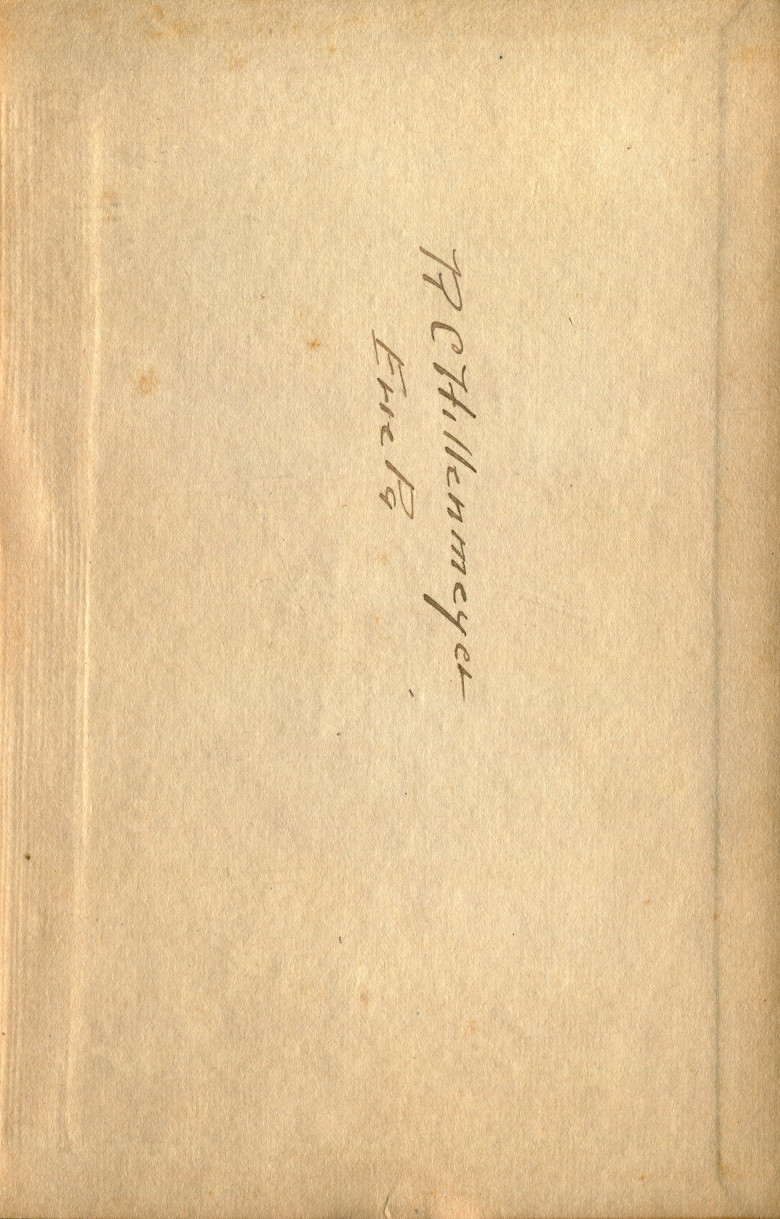 A C Hillenmeyer
Erie Pa